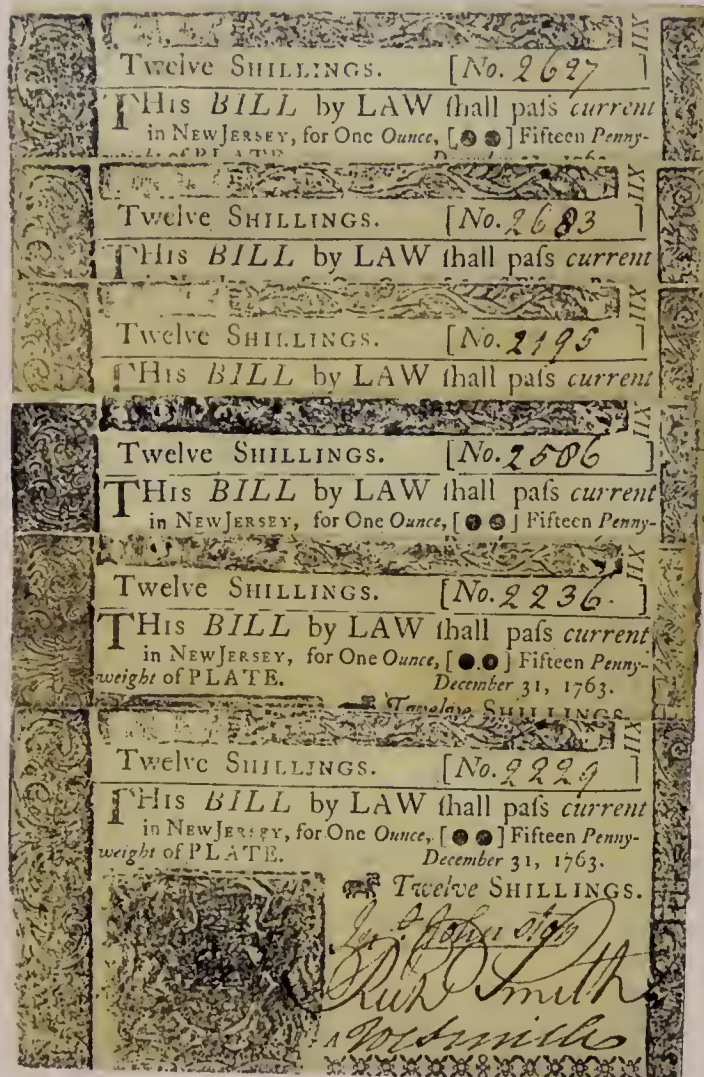 XII
Twelve SHILLINGS. [No. 2627]
THIS BILL by LAW ſhall paſs current
in NEW JERSEY, for One Ounce, [● ●] Fifteen Penny-
XII
Twelve SHILLINGS. [No. 2683]
THIS BILL by LAW ſhall paſs current
XII
Twelve SHILLINGS. [No. 2195]
THIS BILL by LAW ſhall paſs current
XII
Twelve SHILLINGS. [No. 2586]
THIS BILL by LAW ſhall paſs current
in NEW JERSEY, for One Ounce, [● ●] Fifteen Penny-
XII
Twelve SHILLINGS. [No. 2236.]
THIS BILL by LAW ſhall paſs current
in NEW JERSEY, for One Ounce, [●.●] Fifteen Penny-
weight of PLATE. December 31, 1763.
Twelve SHILLINGS
XII
Twelve SHILLINGS. [No. 2229]
THIS BILL by LAW ſhall paſs current
in NEW JERSEY, for One Ounce, [● ●] Fifteen Penny-
weight of PLATE. December 31, 1763.
Twelve SHILLINGS.
Johnston
Rich Smith
A Jos Smith